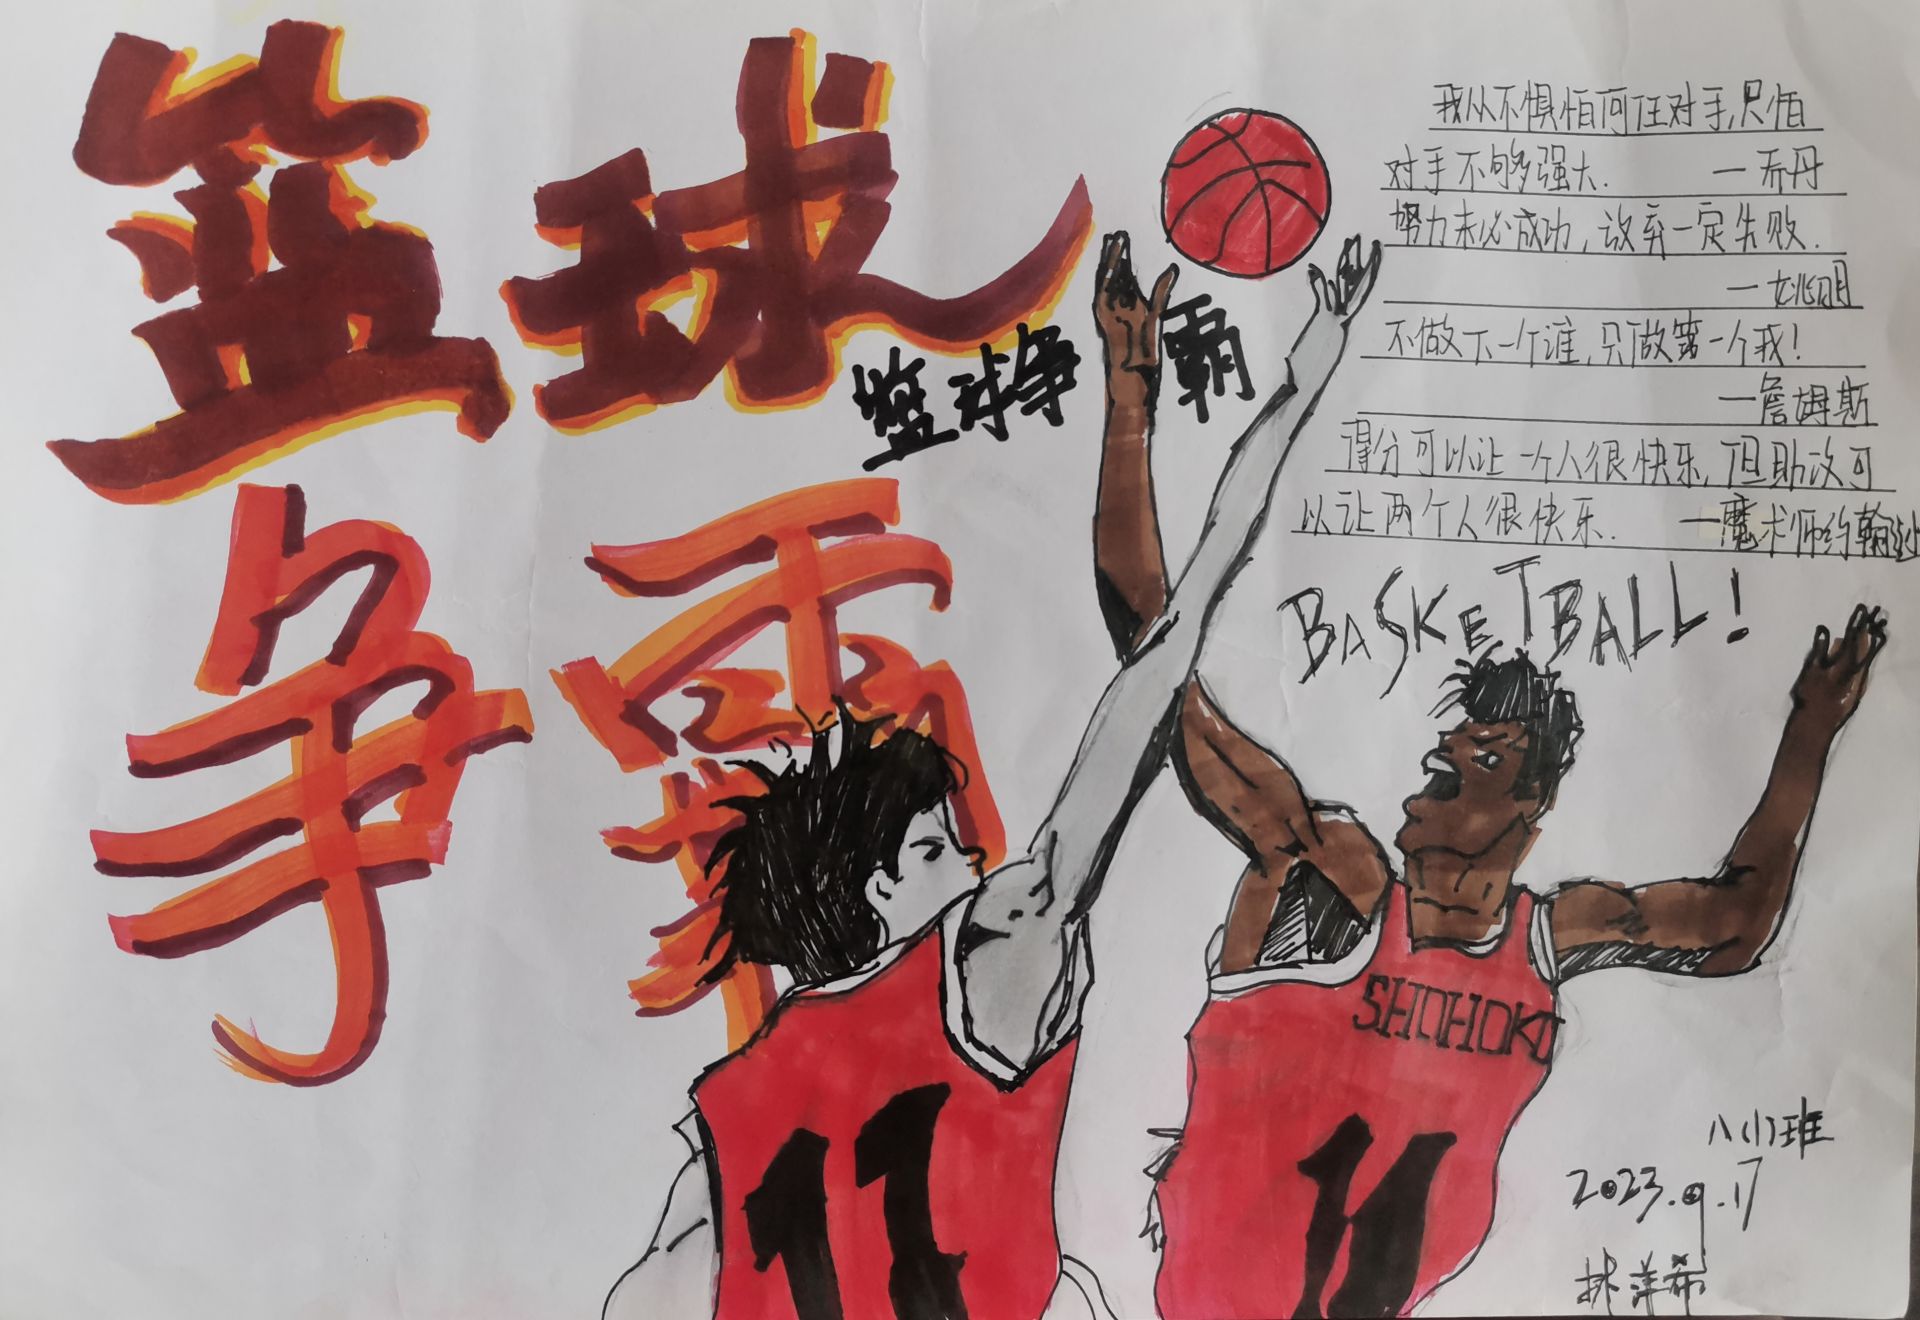 篮球
争霸
篮球争霸
我从不惧怕何任对手,只怕
对手不够强大. —乔丹
努力未必成功,放弃一定失败.
—姚明
不做下一个谁,只做第一个我!
—詹姆斯
得分可以让一个人很快乐,但助攻可
以让两个人很快乐. —魔术师约翰逊
BASKETBALL!
SHOHOKU
11
11
八(1)班
2023.9.17
洋希